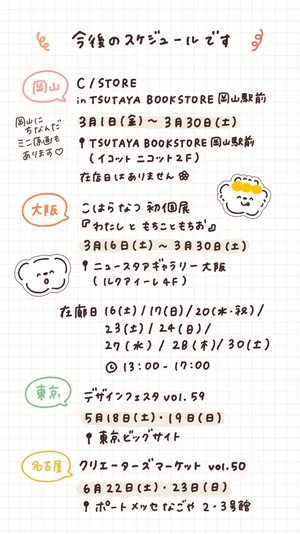 今後のスケジュールです
岡山
C/STORE
in TSUTAYA BOOKSTORE 岡山駅前
3月1日(金)〜 3月30日(土)
TSUTAYA BOOKSTORE 岡山駅前
(イコット ニコット2F)
在店日はありません
岡山に
ちなんだ
ミニ原画も
あります♡
大阪
こはらなつ 初個展
『わたしと もちこともちお』
3月16日(土)〜 3月30日(土)
ニュースタアギャラリー大阪
(ルクアイーレ4F)
在廊日 16(土)/17(日)/20(水・祝)/
23(土)/24(日)/
27(水)/28(木)/30(土)
13:00-17:00
東京
デザインフェスタ vol.59
5月18日(土)・19日(日)
東京ビッグサイト
名古屋
クリエーターズマーケット vol.50
6月22日(土)・23日(日)
ポートメッセなごや 2・3号館